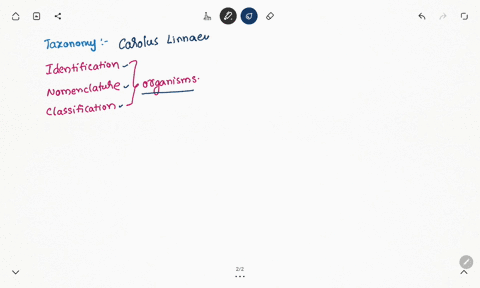 Taxonomy :- Carolus Linnaeu
Identification
Nomenclature
organisms.
Classification
2/2